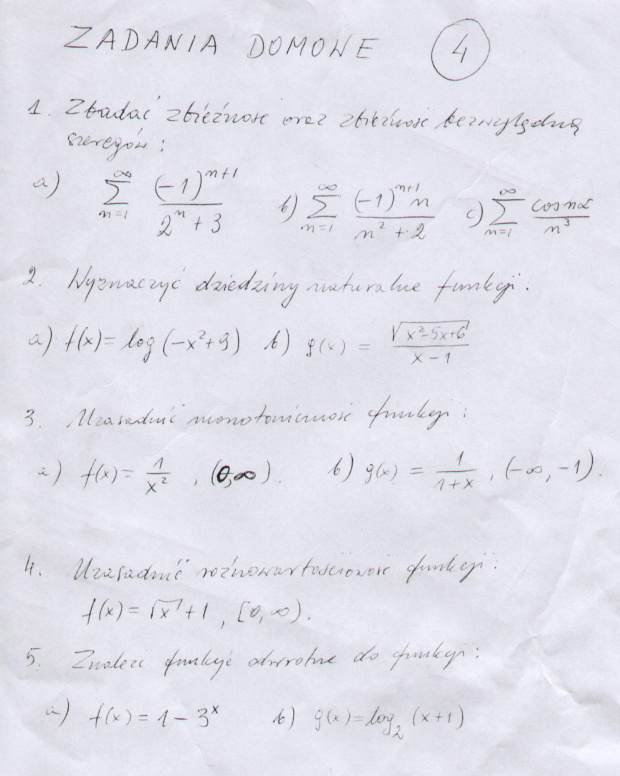 ZADANIA DOMOWE 4
1. Zbadać zbieżność oraz zbieżność bezwzględną
szeregów:
a) ∞ ∑ n=1 (-1)^(n+1) / (2^n + 3) b) ∞ ∑ n=1 (-1)^(n+1) n / (n^2 + 2) c) ∞ ∑ n=1 cos nα / n^3
2. Wyznaczyć dziedziny naturalne funkcji:
a) f(x) = log(-x^2+9) b) g(x) = √(x^2-5x+6) / (x-1)
3. Uzasadnić monotoniczność funkcji:
a) f(x) = 1/x^2, (0,∞). b) g(x) = 1/(1+x), (-∞,-1).
4. Uzasadnić różnowartościowość funkcji:
f(x) = √x + 1, [0,∞).
5. Znaleźć funkcje odwrotne do funkcji:
a) f(x) = 1 - 3^x b) g(x) = log_2 (x+1)